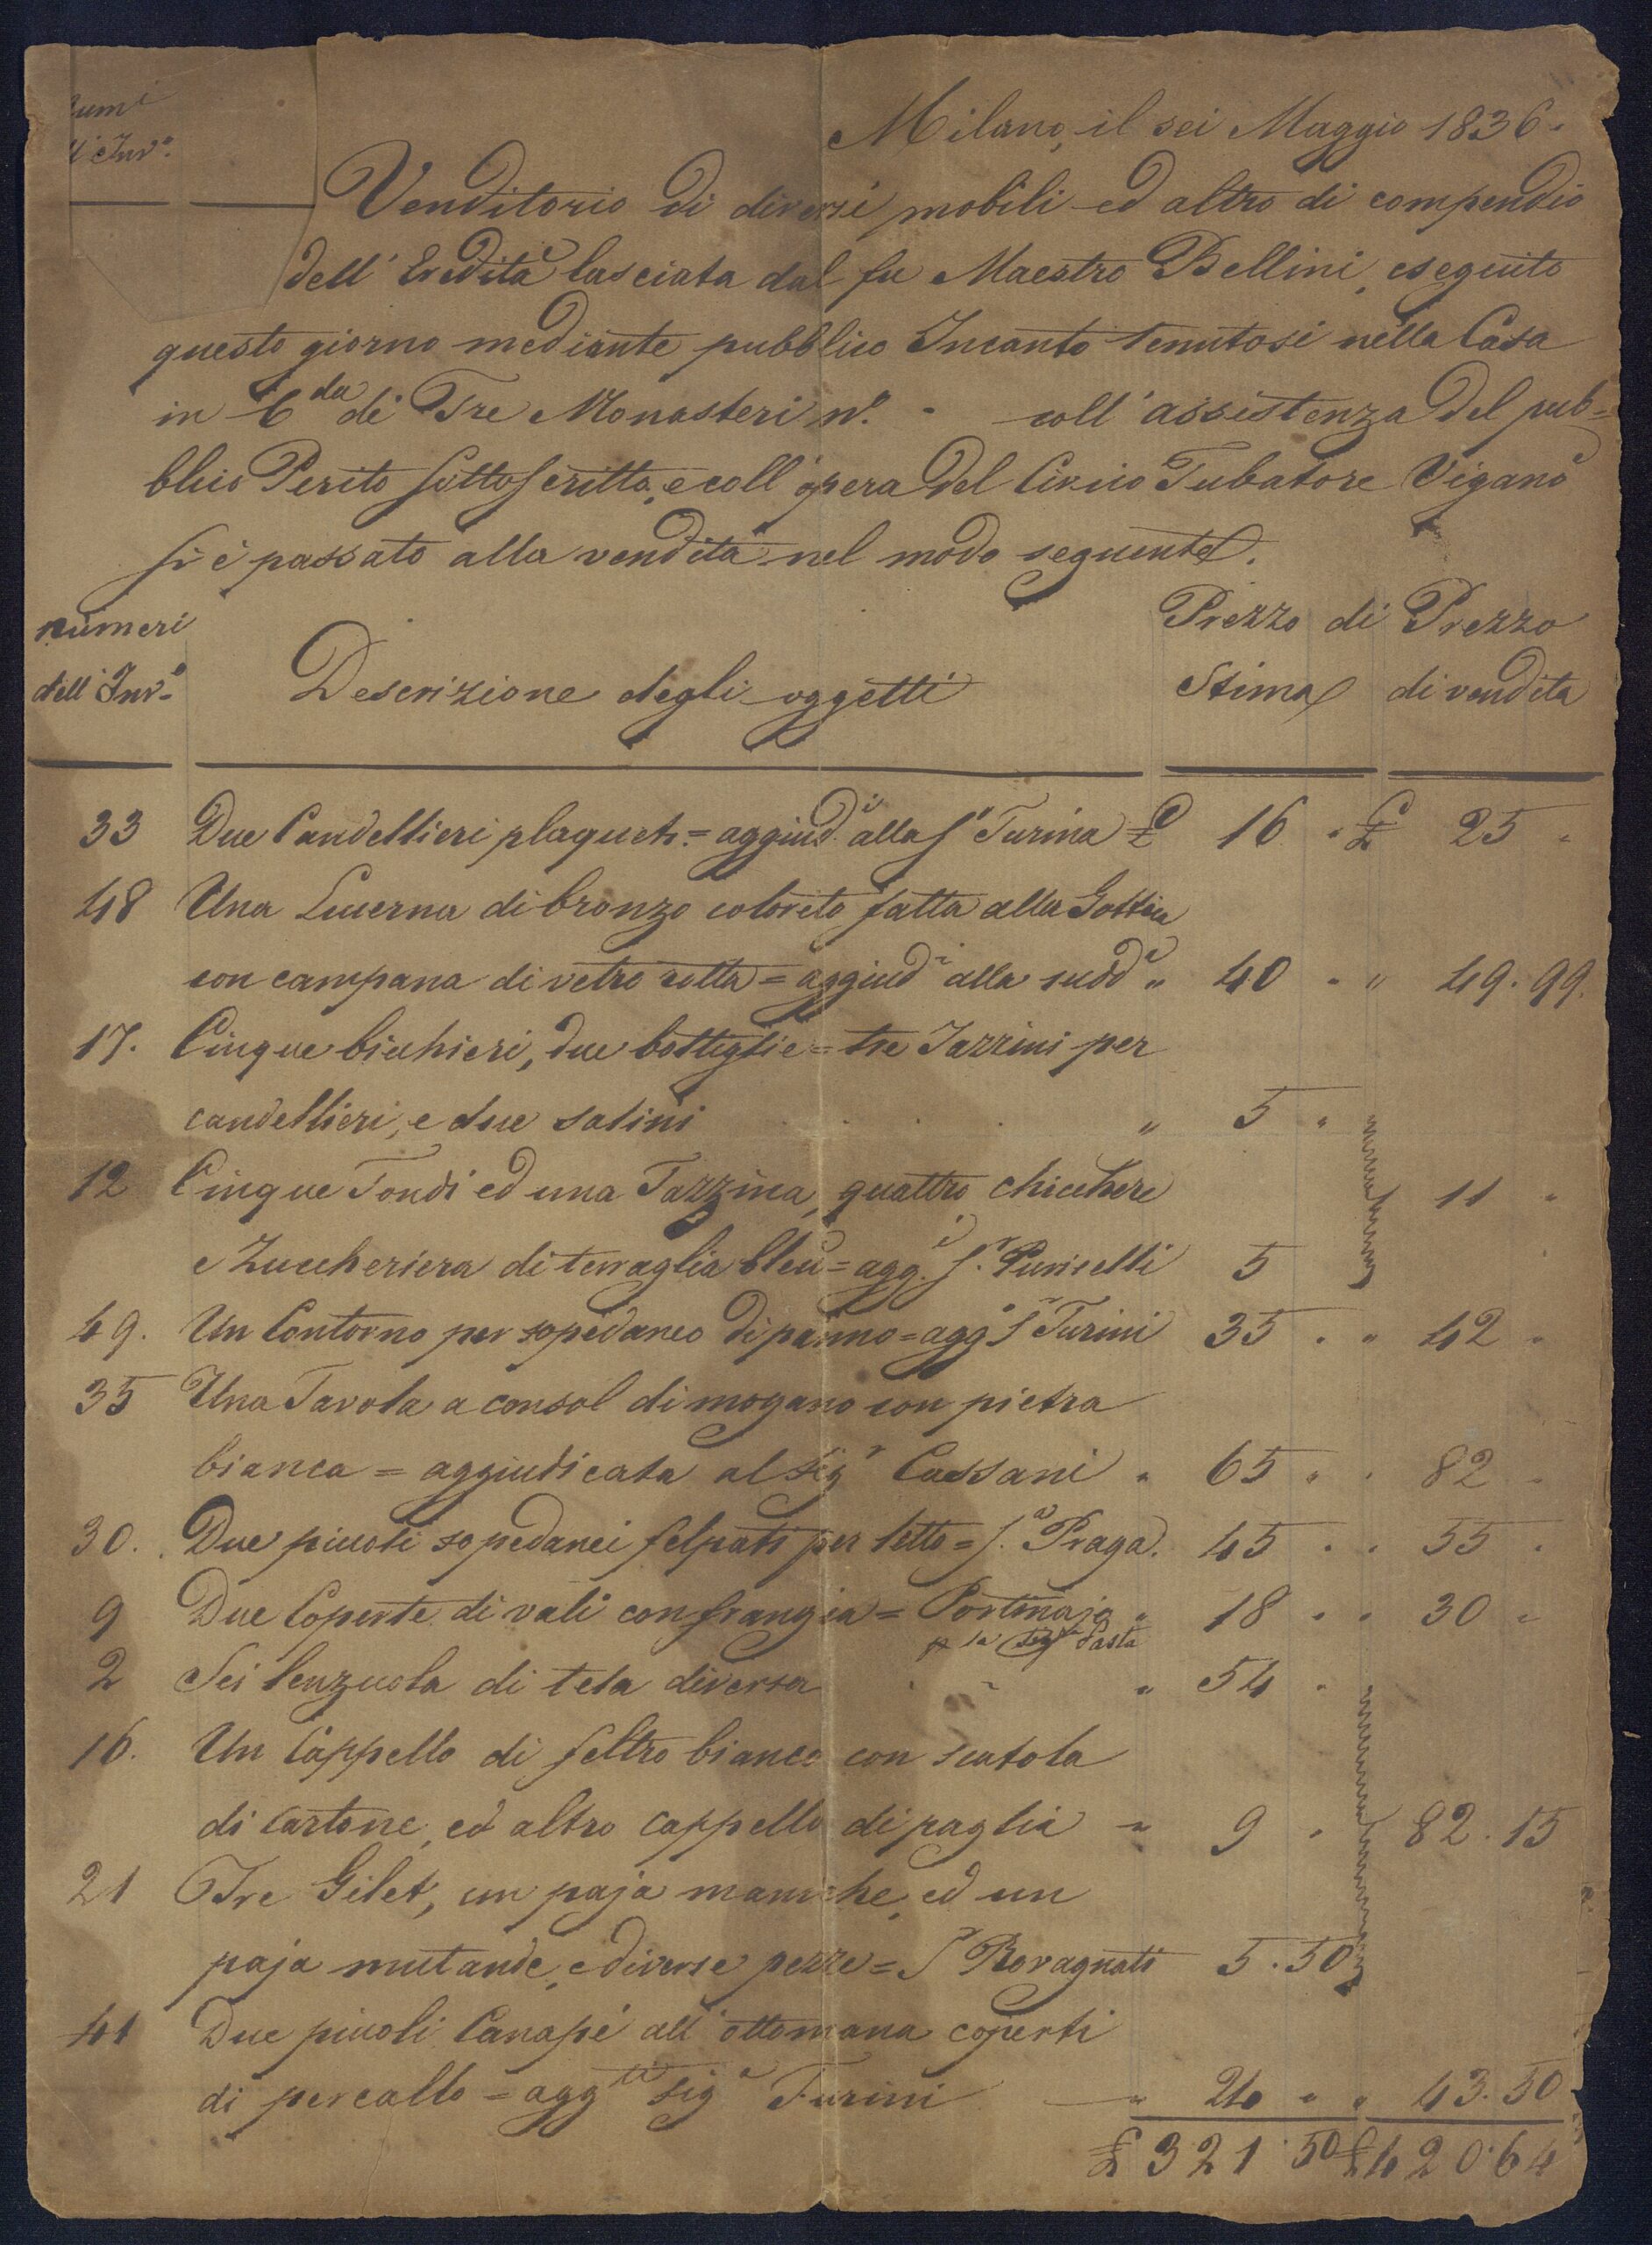 Milano, il sei Maggio 1836.
Venditorio di diversi mobili ed altro di compendio
dell' Eredità lasciata dal fu Maestro Bellini, eseguito
questo giorno mediante pubblico Incanto tenutosi nella Casa
in C.da di Tre Monasteri n.° - coll' assistenza del pub=
blico Perito sottoscritto, e coll' opera del Civico Tubatore Viganò
si è passato alla vendita nel modo seguente.
numeri dell' Inv.° Descrizione degli oggetti Prezzo di Stima Prezzo di vendita
33 Due Candellieri plaquets = aggiud.i alla S.a Turina £ 16 " £ 25 "
48 Una Lucerna di bronzo colorito fatta alla Gottica
con campana di vetro rotta = aggiud.i alla sudd.a " 40 " " 49.99.
17. Cinque bicchieri, due bottiglie = tre Tazzini per
candellieri, e due salini " 5 "
12 Cinque Tondi ed una Tazzina, quattro chicchere 11 "
e Zuccheriera di terraglia bleu = agg.i S.r Puricelli 5
49. Un Contorno per sopedaneo di panno = agg.o S.r Turini 35 " " 42 "
35 Una Tavola a consol di mogano con pietra
bianca = aggiudicata al Sig.r Cassani " 65 " " 82 "
30. Due piccoli sopedanei felpati per letto = S.a Praga. 45 " " 55 "
9 Due Coperte di vali con frangia = Portinajo " 18 " " 30 "
p la Sig.ra Pasta
2 Sei lenzuola di tela diversa " 54 "
16. Un Cappello di feltro bianco con scatola
di cartone, ed altro cappello di paglia " 9 " 82.15
21 Tre Gilet, un paja maniche, ed un
paja mutande, e diverse pezze = S.r Rovagnati 5.50
41 Due piccoli Canapé all' ottomana coperti
di percallo = agg.ti Sig.a Turini " 24 " " 43.50
£ 321.50 £ 420.64